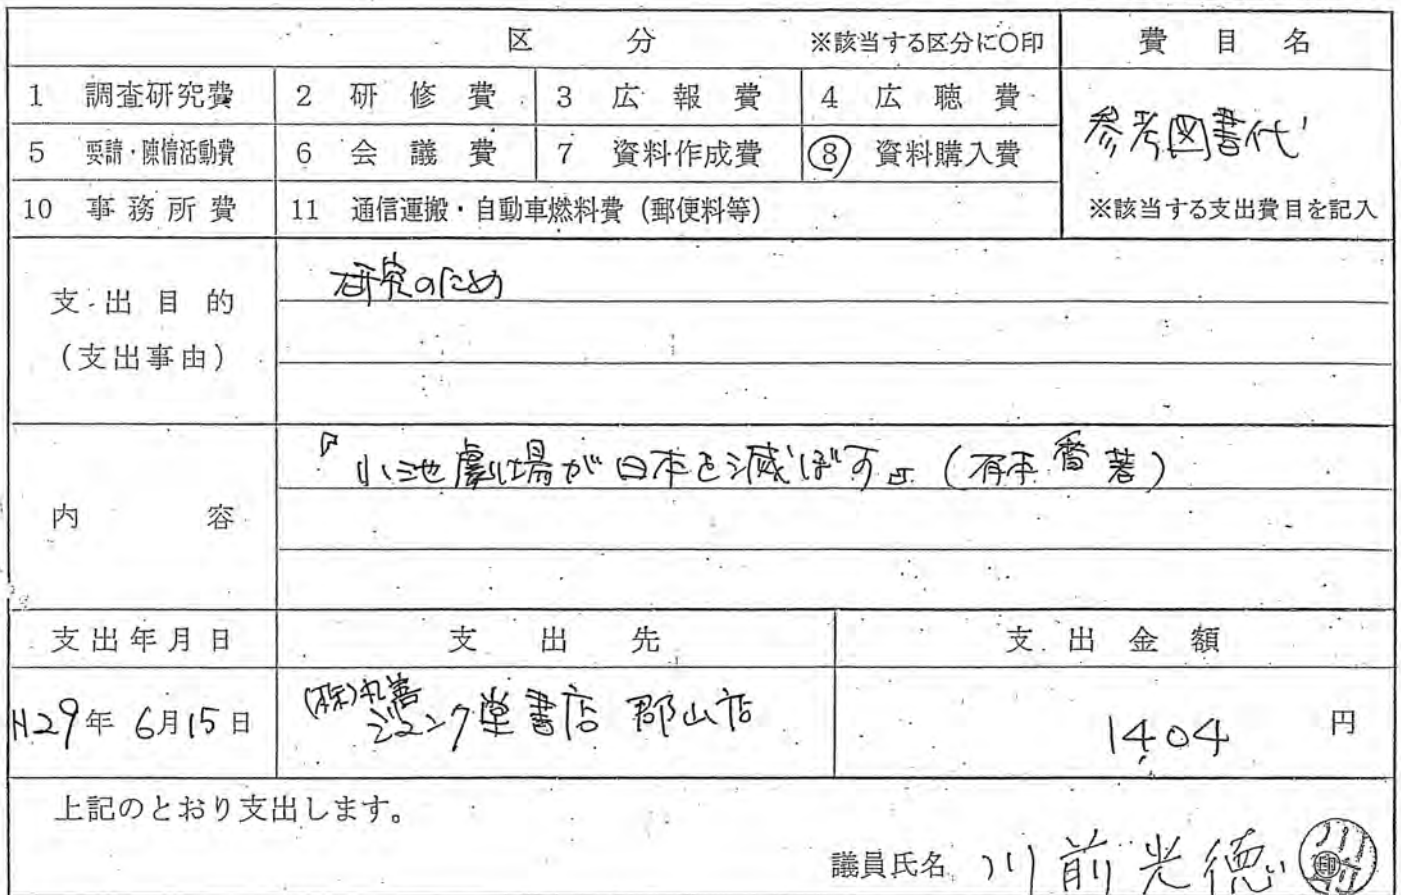 区 分 ※該当する区分に○印 費 目 名
1 調査研究費 2 研 修 費 3 広 報 費 4 広 聴 費
参考図書代
5 要請・陳情活動費 6 会 議 費 7 資料作成費 ⑧ 資料購入費
10 事 務 所 費 11 通信運搬・自動車燃料費（郵便料等） ※該当する支出費目を記入
支 出 目 的
（支出事由）
研究のため
内 容
『小池劇場が日本を滅ぼす』（有本 香 著）
支 出 年 月 日 支 出 先 支 出 金 額
H29年 6月15日 (株)丸善 ジュンク堂書店 郡山店 1404 円
上記のとおり支出します。
議員氏名 川前光徳